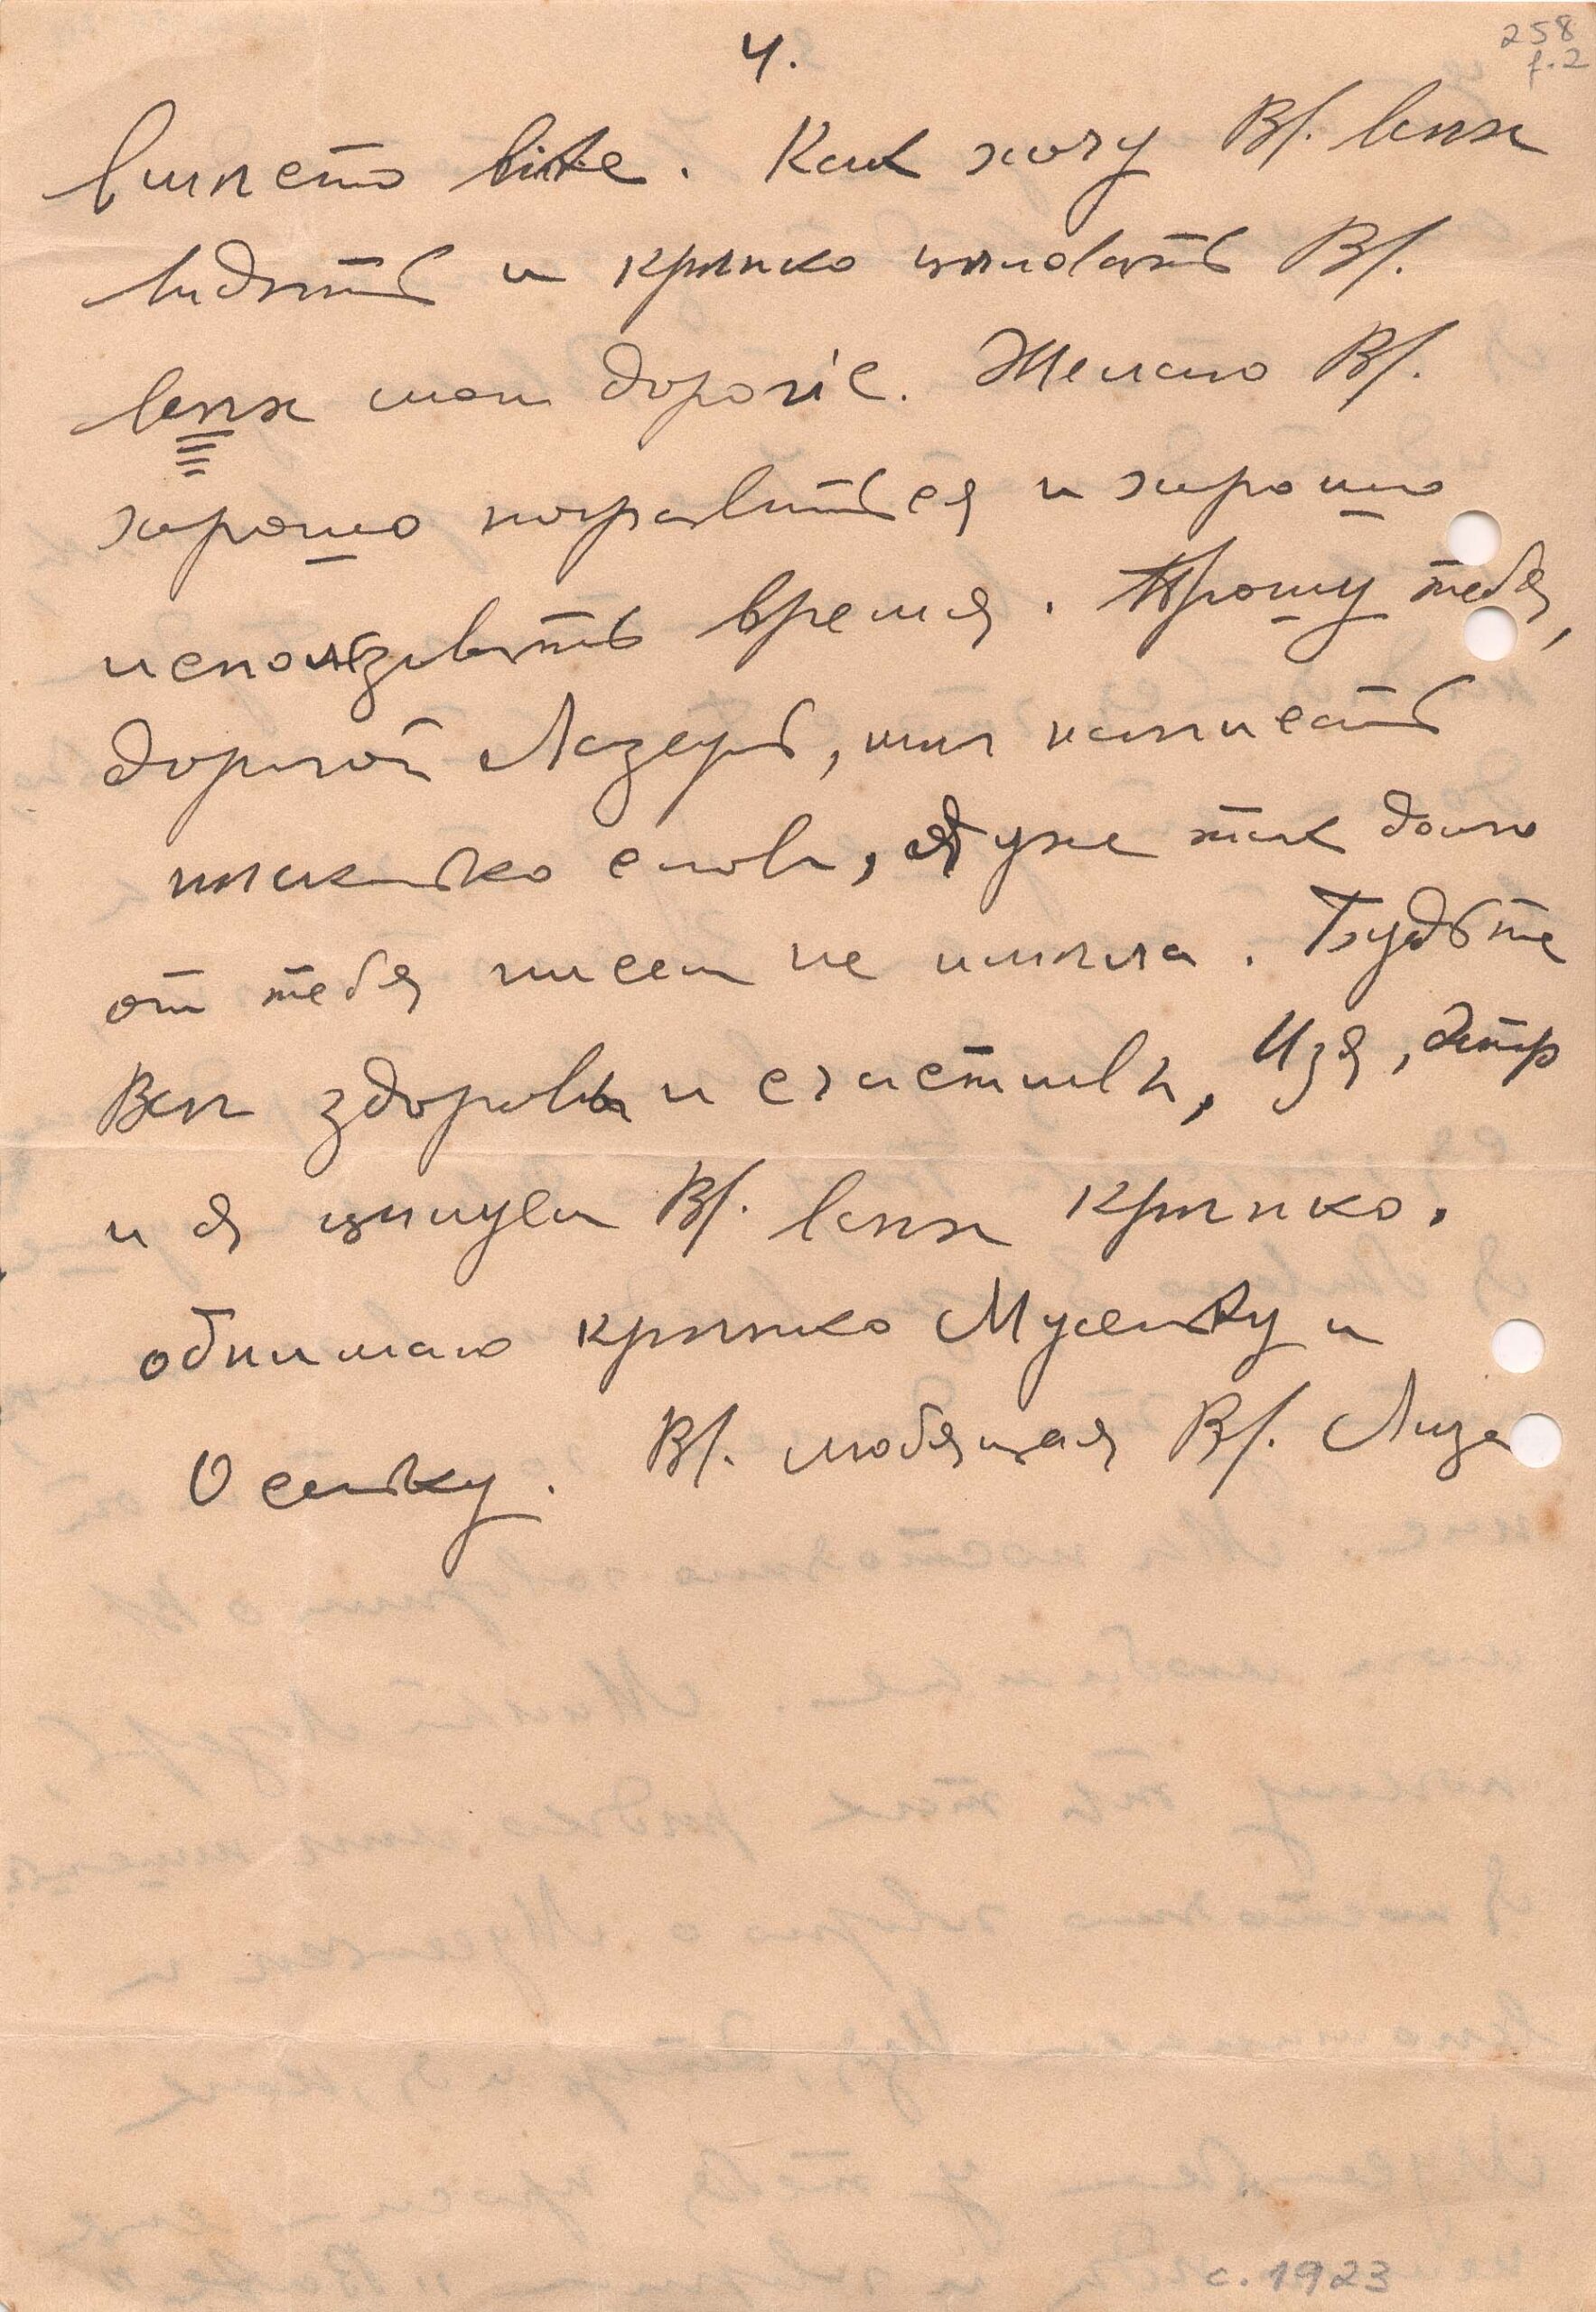 4.
258
f.2
вместо bitte. Какъ хочу Въ. всѣхъ
видѣть и крѣпко цѣловать Въ.
всѣхъ мои дорогiе. Желаю Въ.
хорошо поправиться и хорошо
использовать время. Прошу тебя,
дорогой Лазерь, мнѣ написать
нѣсколько словъ, я уже так долго
от тебя писем не имѣла. Будьте
Всѣ здоровы и счастливы, Изя,
и я цѣлуем Въ. всѣхъ крѣпко.
обнимаю крѣпко Мусеньку и
Осеньку. Въ. любящая Въ. Лиза
c. 1923